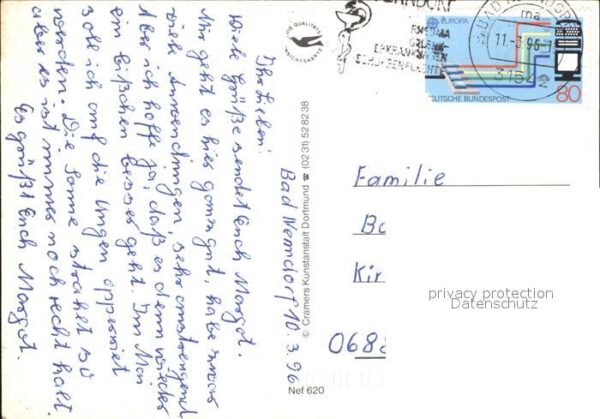 Bad Nenndorf 10.3.96
Ihr Lieben!
Viele Grüße sendet Euch Margot.
Mir geht es hier ganz gut, habe zwar
viele Anwendungen, sehr anstrengend
Aber ich hoffe ja, daß es dann wieder
ein bißchen besser geht. Im Mai
soll ich auf die Augen operiert
werden. Die Sonne strahlt so
aber es ist immer noch recht kalt.
Es grüßt Euch Margot.
DIE QUALITÄTS
ANSICHTSKARTE
© Cramers Kunstanstalt Dortmund ☎ (02 31) 52 82 38
Nef 620
NENNDORF
RHEUMA
GELENK-
ERKRANKUNGEN
EUROPA
DEUTSCHE BUNDESPOST
80
BAD NENNDORF
11.-3.96-1
3154
Familie
Ba
Kir
068
privacy protection
Datenschutz